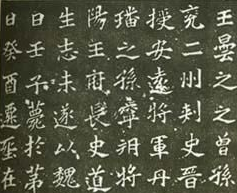 王曇之之曾孫
兗二州刾史晉
授安遠將軍丹
璠之孫寧朔將
陽王府長史道
生志未遂以魏
日壬子薨於茅
日癸酉在